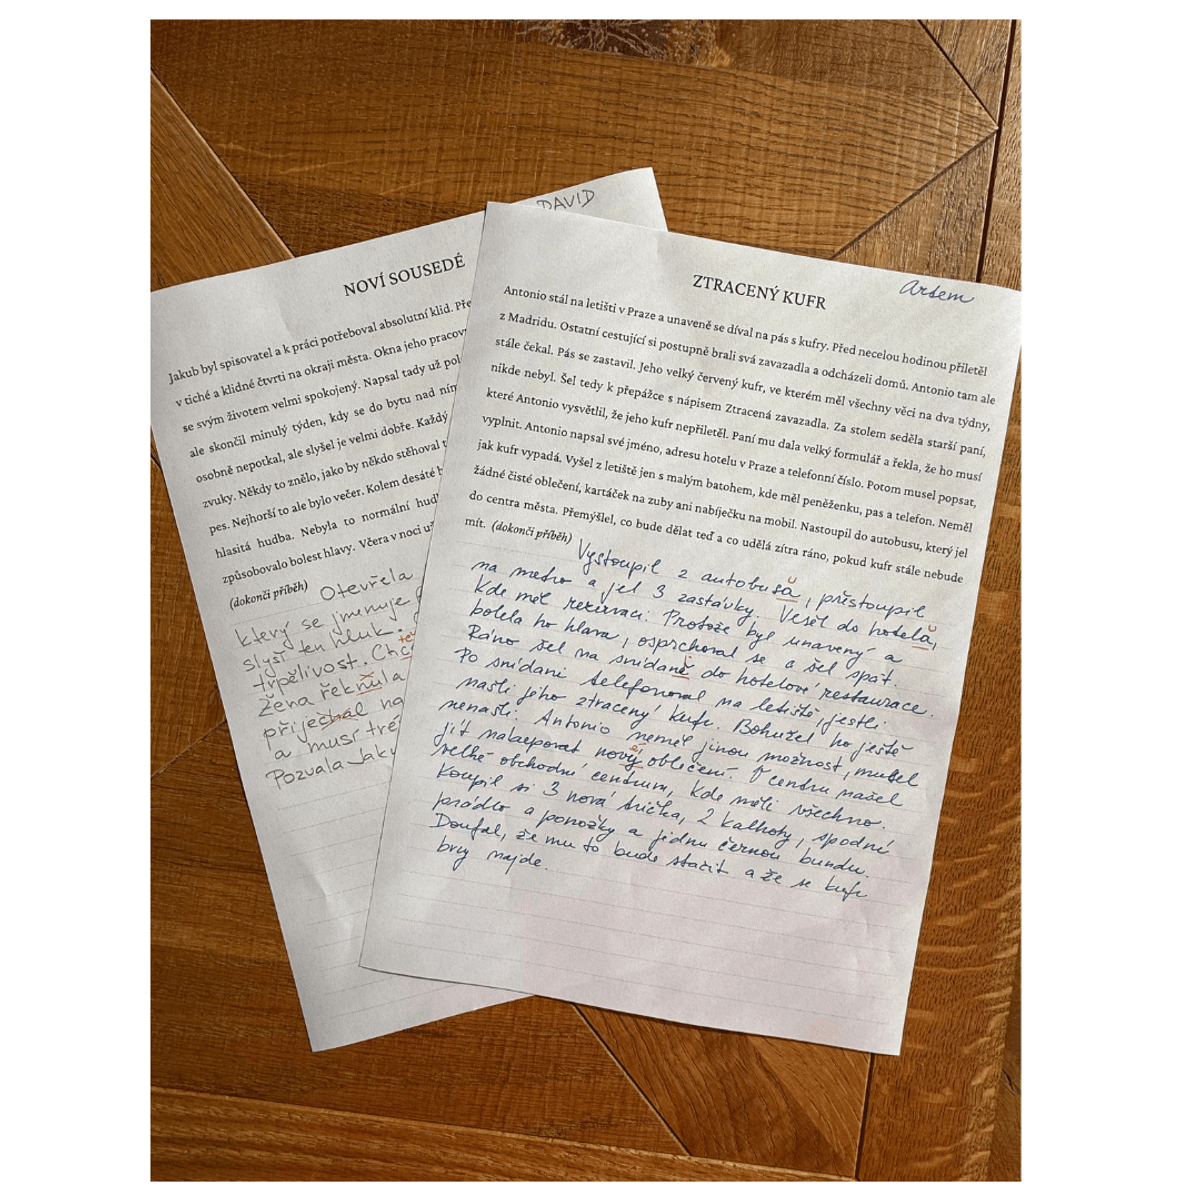 DAVID
NOVÍ SOUSEDÉ
Jakub byl spisovatel a k práci potřeboval absolutní klid. Pře
v tiché a klidné čtvrti na okraji města. Okna jeho pracov
se svým životem velmi spokojený. Napsal tady už pol
ale skončil minulý týden, kdy se do bytu nad ním
osobně nepotkal, ale slyšel je velmi dobře. Každý
zvuky. Někdy to znělo, jako by někdo stěhoval t
pes. Nejhorší to ale bylo večer. Kolem desáté h
hlasitá hudba. Nebyla to normální hud
způsobovalo bolest hlavy. Včera v noci už
(dokonči příběh) Otevřela
který se jmenuje
slyší ten hluk.
trpělivost. Chc
žena řeknula
přiječhal na
a musí
Pozvala Jaky
Artem
ZTRACENÝ KUFR
Antonio stál na letišti v Praze a unaveně se díval na pás s kufry. Před necelou hodinou přiletěl
z Madridu. Ostatní cestující si postupně brali svá zavazadla a odcházeli domů. Antonio tam ale
stále čekal. Pás se zastavil. Jeho velký červený kufr, ve kterém měl všechny věci na dva týdny,
nikde nebyl. Šel tedy k přepážce s nápisem Ztracená zavazadla. Za stolem seděla starší paní,
které Antonio vysvětlil, že jeho kufr nepřiletěl. Paní mu dala velký formulář a řekla, že ho musí
vyplnit. Antonio napsal své jméno, adresu hotelu v Praze a telefonní číslo. Potom musel popsat,
jak kufr vypadá. Vyšel z letiště jen s malým batohem, kde měl peněženku, pas a telefon. Neměl
žádné čisté oblečení, kartáček na zuby ani nabíječku na mobil. Nastoupil do autobusu, který jel
do centra města. Přemýšlel, co bude dělat teď a co udělá zítra ráno, pokud kufr stále nebude
mít. (dokonči příběh) Vystoupil z autobusa, přistoupil
na metro a jel 3 zastávky. Vešel do hotela,
kde měl rezirvaci. Protože byl unavený a
bolela ho hlava, osprchoval se a šel spat.
Ráno šel na snídaně do hotelové restaurace.
Po snídani telefonoval na letiště, jestli
našli jeho ztracený kufr. Bohužel ho ještě
nenašli. Antonio neměl jinou možnost, musel
jít nakupovat nový oblečení. V centru našel
velké obchodní centrum, kde měli všechno.
Koupil si 3 nová trička, 2 kalhoty, spodní
prádlo a ponožky a jednu černou bundu.
Doufal, že mu to bude stačit a že se kufr
brzy najde.